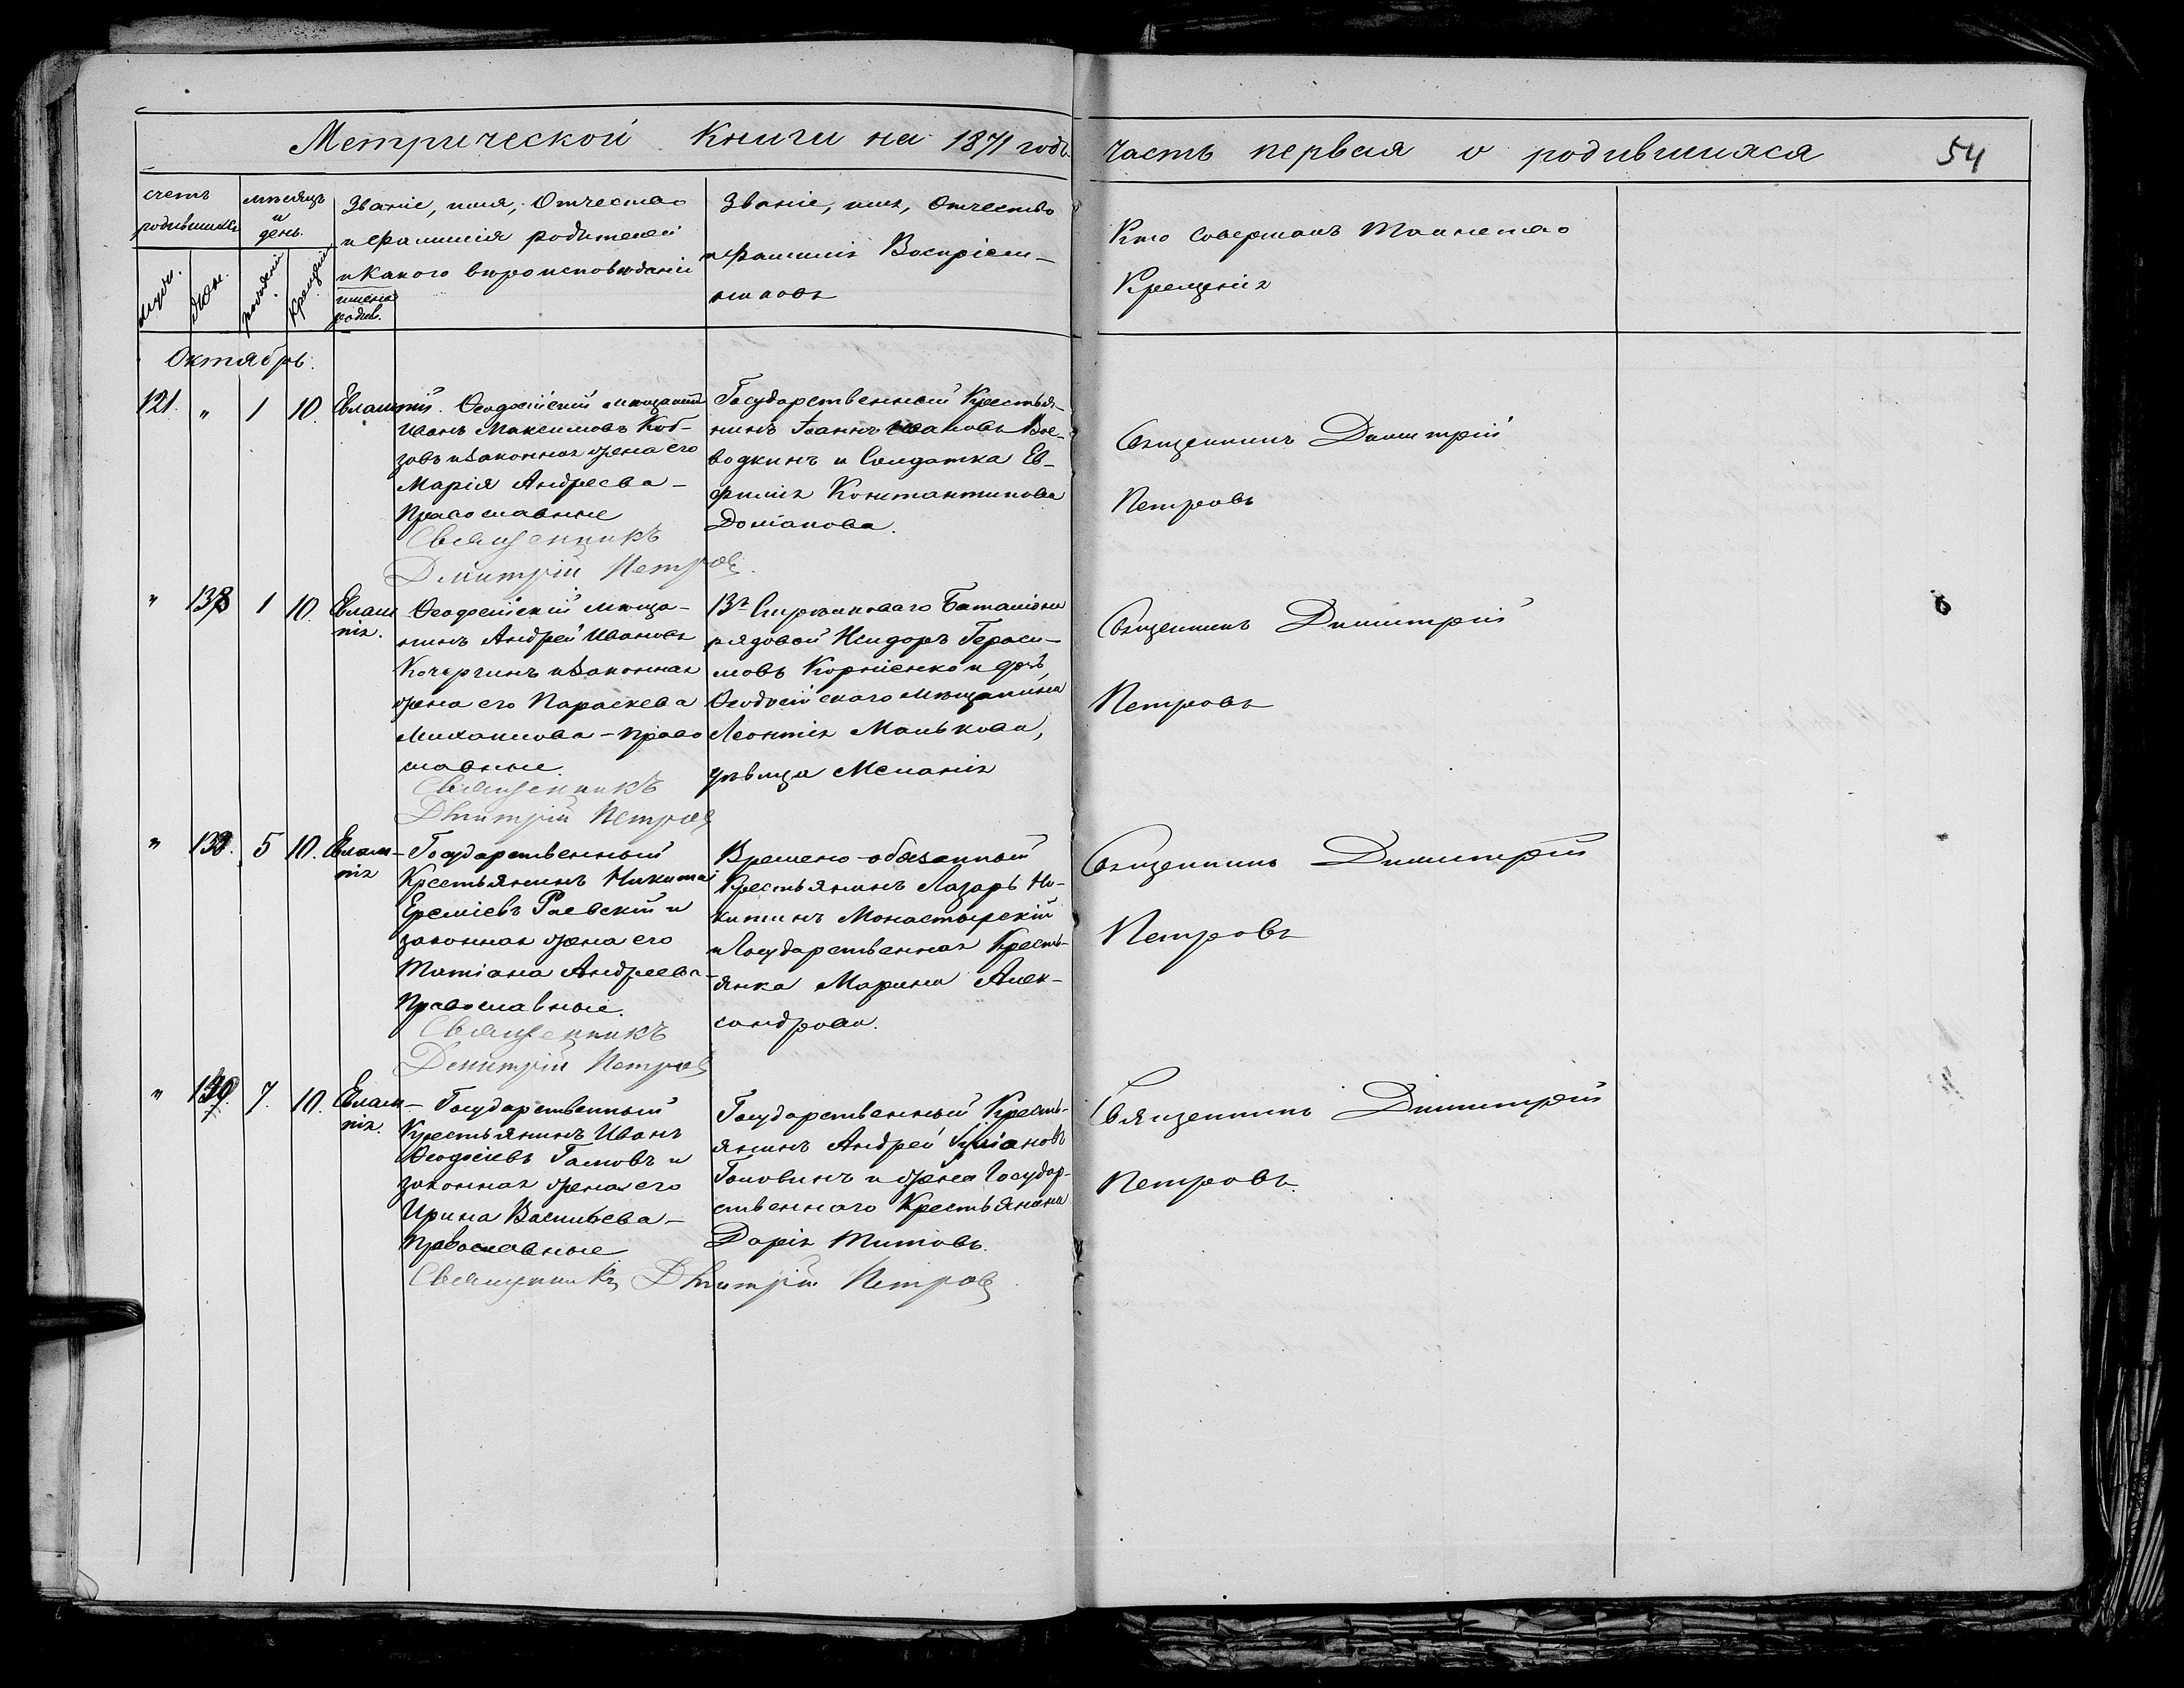 Метрической Книги на 1871 годъ
часть первая о родившихся
54
счетъ родившихся
мѣсяцъ и день.
Званіе, имя, Отчество
и фамилія родителей
и какого вѣроисповѣданія
Званіе, имя, Отчество
и фамилія Воспріем-
никовъ
Кто совершалъ Таинство
Крещенія
муж.
жен.
рожденія
крещенія
имена
родив.
Октябрь.
121. " 1 10. Евлампій. Ѳеодосійскій мѣщанинъ
Иванъ Максимовъ Коб-
зовъ и законная жена его
Марія Андреева –
Православные
Священникъ
Дмитрій Петровъ.
Государственный Крестья-
нинъ Іоаннъ Ивановъ Вое-
водкинъ и Солдатка Ев-
фимія Константинова
Доманова.
Священникъ Димитрій
Петровъ
" 138 1 10. Евлам
пія.
Ѳеодосійскій мѣща-
нинъ Андрей Ивановъ
Кочергинъ и законная
жена его Параскева
Михаилова – право
славные.
Священникъ
Дмитрій Петровъ
Стрѣлковаго Баталіона
рядовой Исидоръ Гераси-
мовъ Корніенко и дочь
Ѳеодосійскаго мѣщанина
Леонтія Манькова,
дѣвица Меланія
Священникъ Димитрій
Петровъ
" 5 10. Евлам-
пія
Государственный
Крестьянинъ Никита
Ереміевъ Раевскій и
законная жена его
Татіана Андреева –
Православные.
Священникъ
Дмитрій Петровъ
Времено-обязанный
Крестьянинъ Лазарь Ни-
китинъ Монастырскій
и Государственная Кресть-
янка Марина Алек-
сандрова.
Священникъ Димитрій
Петровъ
" 7. 10. Евлам-
пія.
Государственный
Крестьянинъ Иванъ
Ѳеодосіевъ Гамовъ и
законная жена его
Ирина Васильева –
Православные
Священникъ Дмитрій Петровъ
Государственный Кресть-
янинъ Андрей
Головинъ и жена Государ-
ственнаго Крестьянина
Дарія Титовъ.
Священникъ Димитрій
Петровъ.